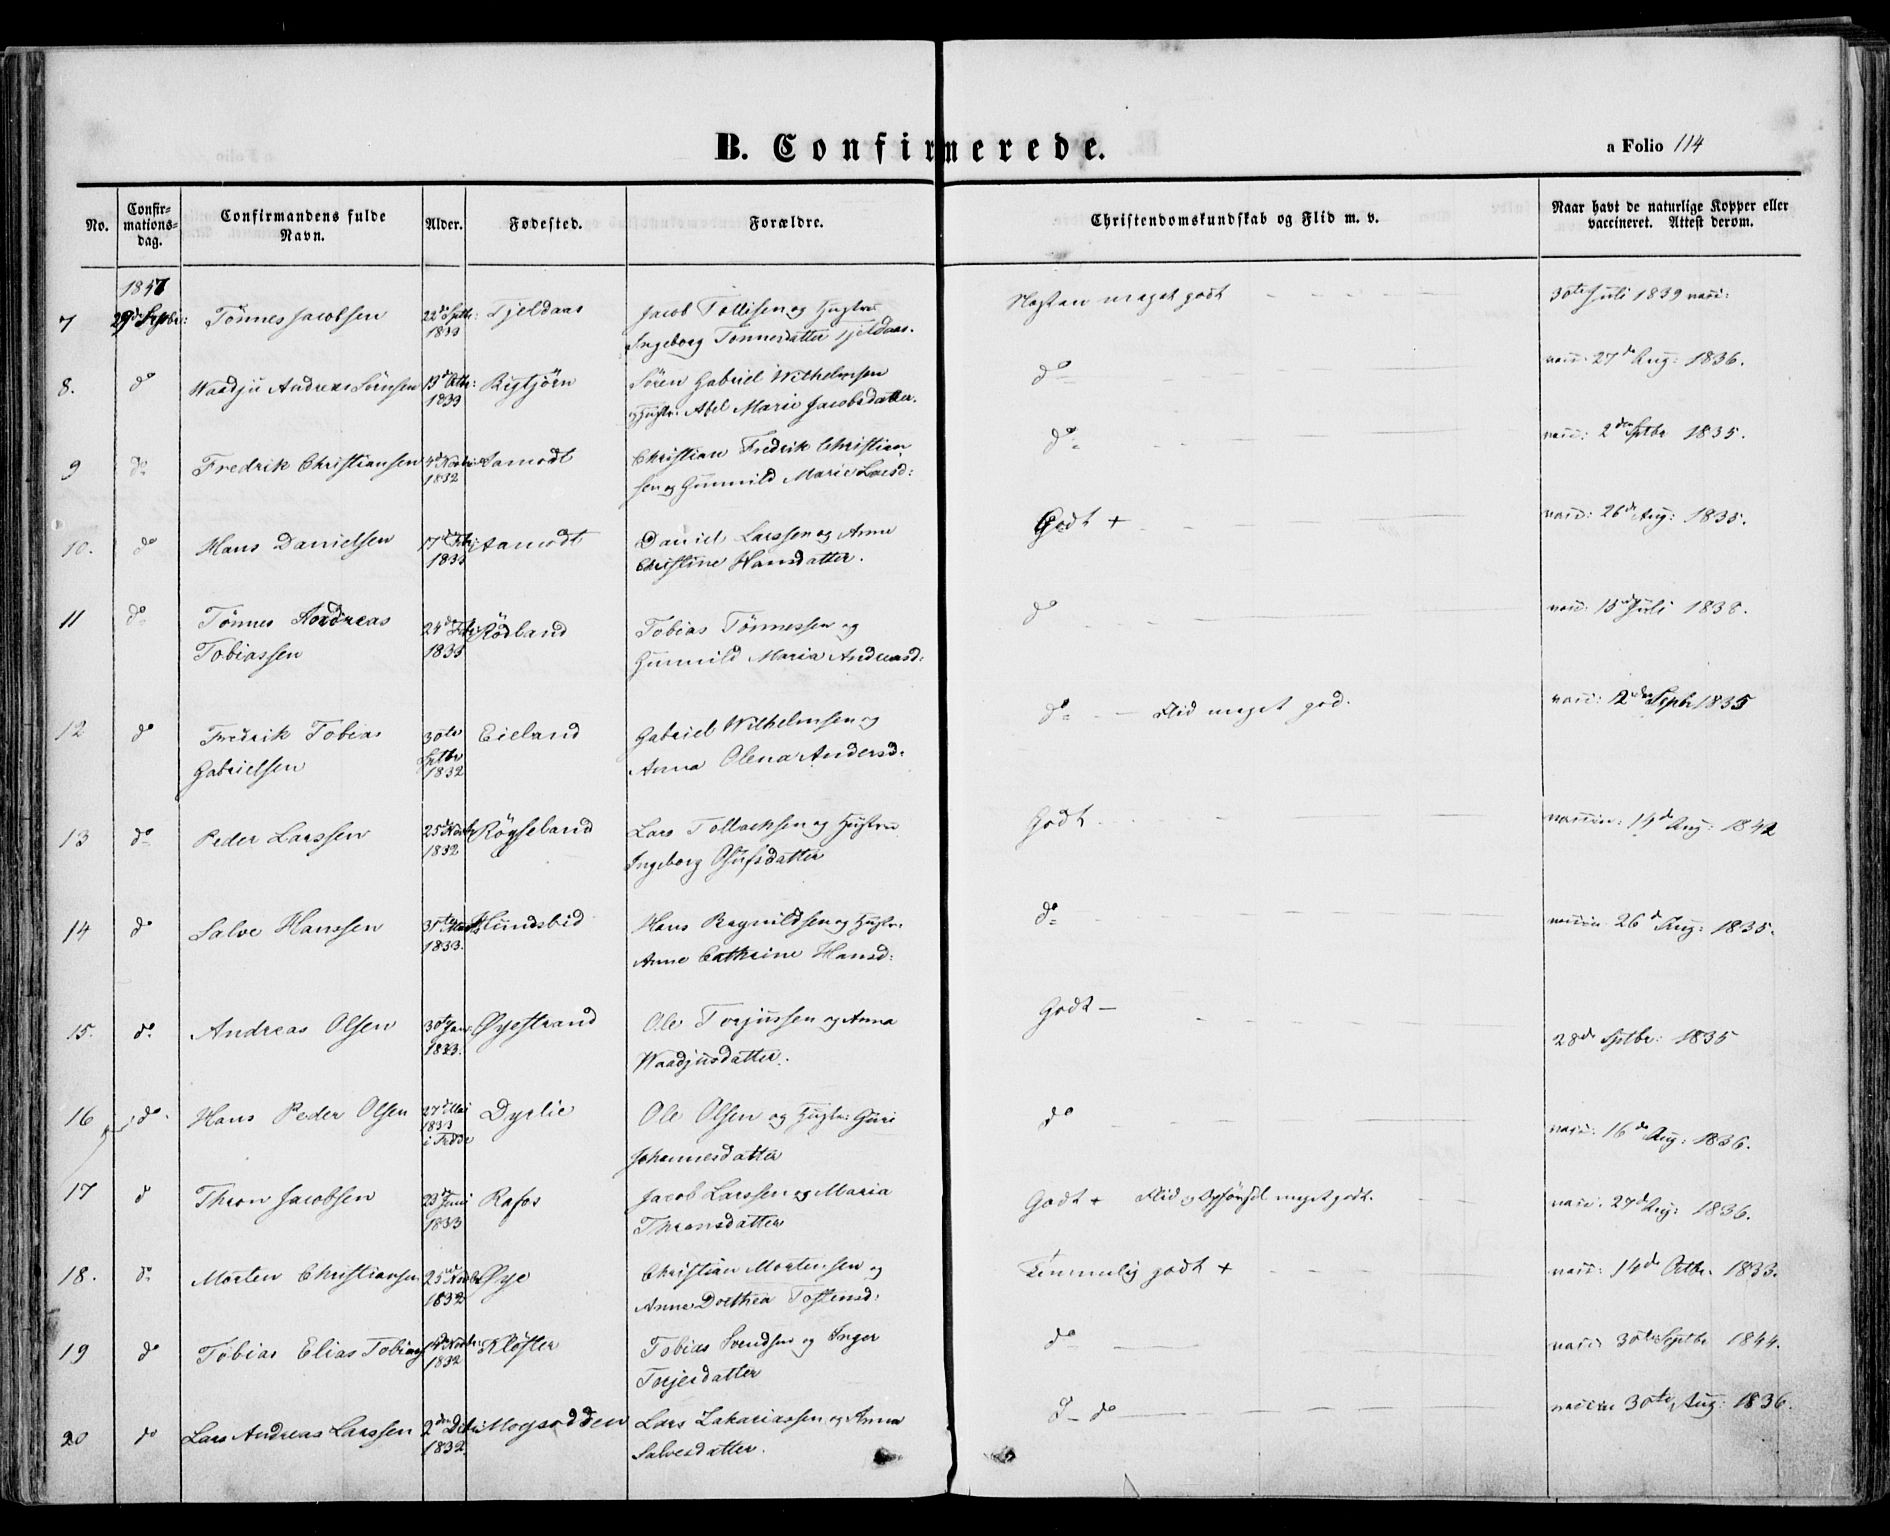 B. Confirmerede.
a Folio 114
No.
Confir-
mations-
dag.
Confirmandens fulde
Navn.
Alder.
Fødested.
Forældre.
Christendomskundskab og Flid m. v.
Naar havt de naturlige Kopper eller
vaccineret. Attest derom.
7 29de Septbr: Tønnes Jacobsen 22de Septb: 1833 Fjeldaas
Jacob Tollisen og Hustru
Ingeborg Tønnesdatter Fjeldaas.
meget godt 30te Juli 1839 vacc:
8. do Waadju Andreas Sørensen 13de Octb: Rigtjørn
Søren Gabriel Wilhelmsen
og Hustr: Abel Marie Jacobsdatter.
do vacc: 27de Aug: 1836.
9 do Fredrik Christiansen 4de Novbr 1832 Aamodt
Christian Fredrik Christian-
sen og Gunnild Marie Larsd:
do vacc: 2den Septbr 1835.
10. do Hans Danielsen 17de Febr: Aamodt
Daniel Larssen og Anne
Christine Hansdatter.
Godt + vacc: 26de Aug: 1835.
11 do Tønnes Andreas
Tobiassen
24de Febr: Rødland
Tobias Tønnessen og
Gunnild Maria Andreasd:
do vacc: 15de Juli 1838.
12 do Fredrik Tobias
Gabrielsen
30te
Septbr
1832
Eieland
Gabriel Wilhelmsen og
Anna Olena Andersd:
do - Flid meget god. vacc: Septbr 1835
13 do Peder Larssen 25de Novbr 1832 Røyseland
Lars Tollachsen og Hustru
Ingeborg Osufsdatter
Godt. vaccin: 14de Aug: 1842
14 do Salve Hanssen 31te 1833. Hundsbid
Hans Regnildsen og Hustru:
Anne Cathrine Hansd:
do vaccin 26de Aug: 1835.
15. do Andreas Olsen 30te Jan: 1833. Øyestrand
Ole Torjussen og Anna
Waadjusdatter.
Godt — 28de Septbr: 1835
16 do Hans Peder Olsen 27de Mai
1833
Dyrlie
Ole Olsen og Hustr: Guri
Johannesdatter
do vacc: 16de Aug: 1836.
17 d Thron Jacobsen 23de Juni
1833
Rafos
Jacob Larssen og Maria
Thronsdatter
Godt + Flid og Opførsel meget godt. vacc: 27de Aug: 1836.
18. do Morten Christiansen 25de Novbr
1832
Øye
Christian Mortensen og
Anne Dorthea Tostensd:
Temmelig godt + vacc: 14de Octbr. 1833.
19 do Tobias Elias Tobiass 14de Novbr:
1832
Kloster
Tobias Svendsen og Inger
Torjersdatter
do vacc: 30te Septbr 1844.
20 do Lars Andreas Larssen 2den Dcbr:
1832
Mogsodden
Lars Zakariassen og Anna
Salvesdatter.
do vaccin 30te Aug: 1836.